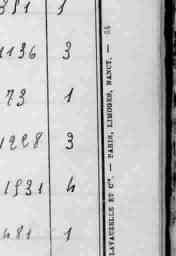 1136 3
73 1
1228 3
1931 4
481 1
LAVAUZELLE ET Cie. — PARIS, LIMOGES, NANCY. —